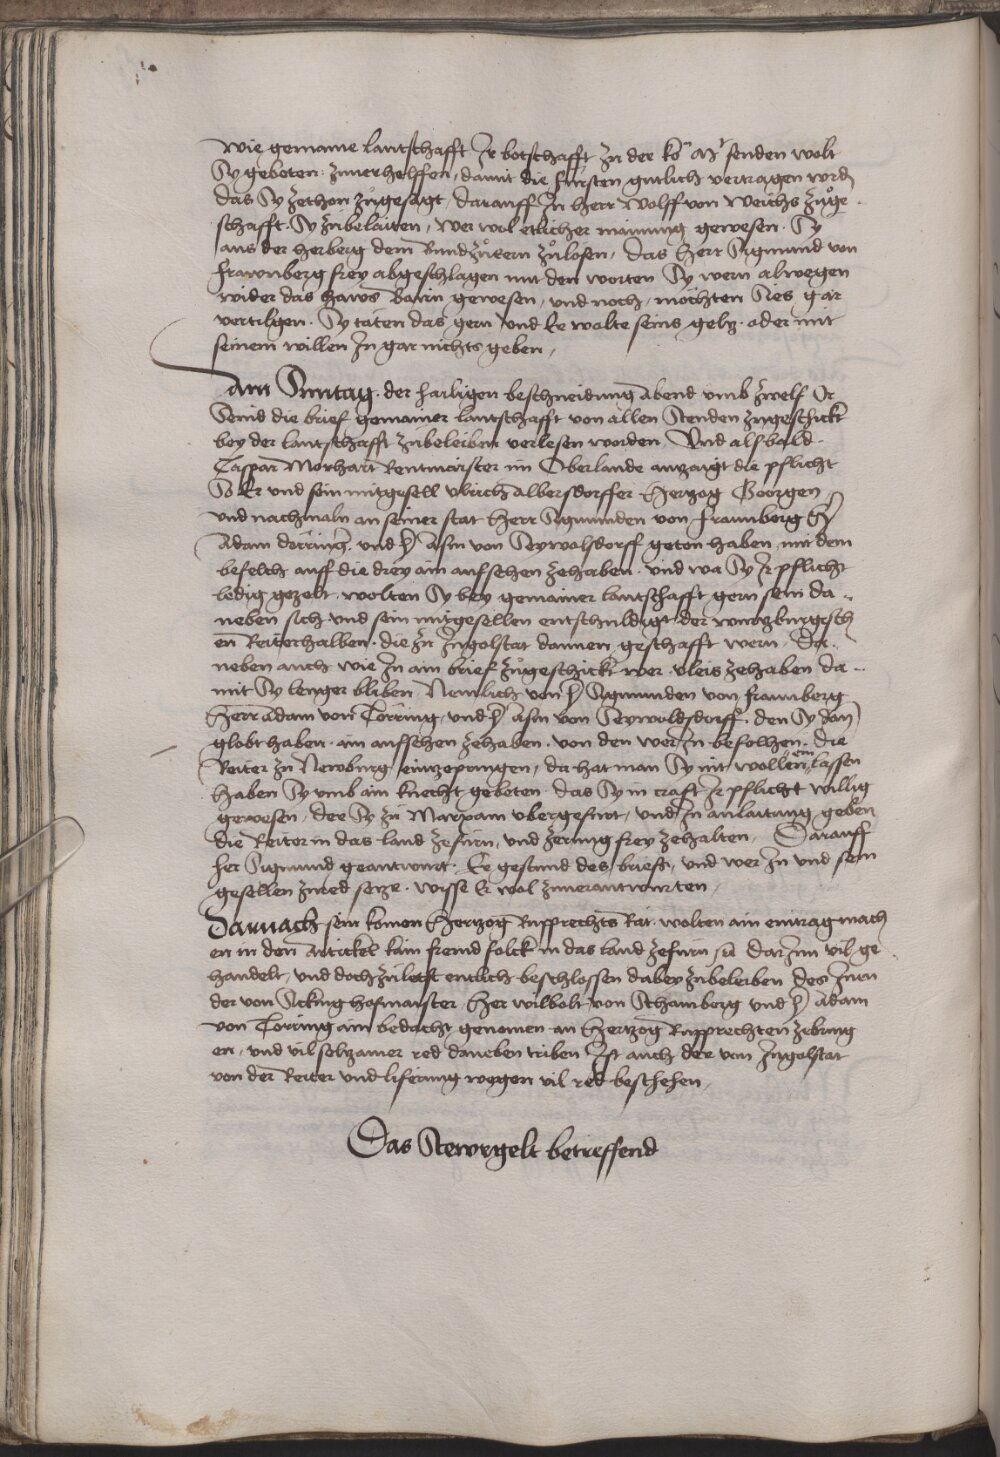 wie gemaine lantschafft Ir botschafft zu der ko͂ Mt senden wolt
Sy gebeten zuuerhelffen, damit die fürsten gutlich vertragen word
das Sy zethon zůgesagt, darauff In herr Wolff von Weichs zůge
schafft Sy zubelaiten, wer wol etlicher mainung gewesen Sy
aus der herberg dem Bundzůkern zůlosen, das Herr Sigmund von
frawnberg frey abgeschlagen mit den worten Sy wern alwegen
wider das haws Bairn gewesen, und noch, mochten Sies gar
vertilgen. Sy täten das gern und Er wolte seins gelts oder mit
seinem willen In gar nichts geben,
Am Suntag der hailigen beschneidung Abend umb zwelf Ur
Seind die brief gemainer lantschafft von allen Stenden zugeschickt
bey der lantschafft zubeleiben verlesen worden. Und alsbald
Caspar Morhart Rentmaister im Oberlande anzaigt die pflicht
So Er und sein mitgesell Ulrich Albersdorffer Hertzog Georgen
und nachmaln an seiner stat Herr Sigmunden von fraunberg H
Adam dörrings und H Asm von Seywolsdorff geton haben mit dem
befelch auff die drey ain aufsehen zehaben. und wa Sy Ir pflicht
ledig gezelt. wolten Sy bey gemainer lantschafft gern sein da
neben sich und sein mitgesellen entschuldigt der wurtzburgisch
en Reiterhalben. die zu Ingolstat dannen geschafft wern Da
neben auch wie In ain brief zůgeschickt wer vleis zehaben da
mit Sy lenger bliben Nemlich von H Sygmunden von fraunberg
Herr Adam von Törring, und H Asm von Seywoldsdorff. den Sy dan
globt haben. ain aufsehen zehaben. von den wer In befolhen. die
Reiter zu Newburg einzepringen, da hat man Sy nit wollen ein lassen
haben Sy umb ain knecht gebeten. das Sy in craft Ir pflicht willig
gewesen, der Sy zu Marxam ubergefurt, und In anlaitung geben
die Reiter in das land zefurn, und zerung frey zehalten, Darauff
her Sigmund geantwurt. Er gestund des briefs, und wer In und sein
gesellen zured setze. wisse Er wol zuuerantwurten,
Darnach sein komen Hertzog Rupprechts Rät. wolten ain eintrag mach
en in den Artickel kain fremd folck in das land zefurn ist darInn vil ge
handelt, und doch zuletst entlich beschlossen dabey zubeleiben des Inen
der von Sicking hofmaister Her wilbolt von Schamberg und H Adam
von Törring ain bedacht genomen an Hertzog Rupprechten zebring
en, und vil selbzamer red daneben triben Ist auch der von Ingolstat
von der Reiter und liferung wegen vil red beschehen,
Das Stewrgelt betreffend